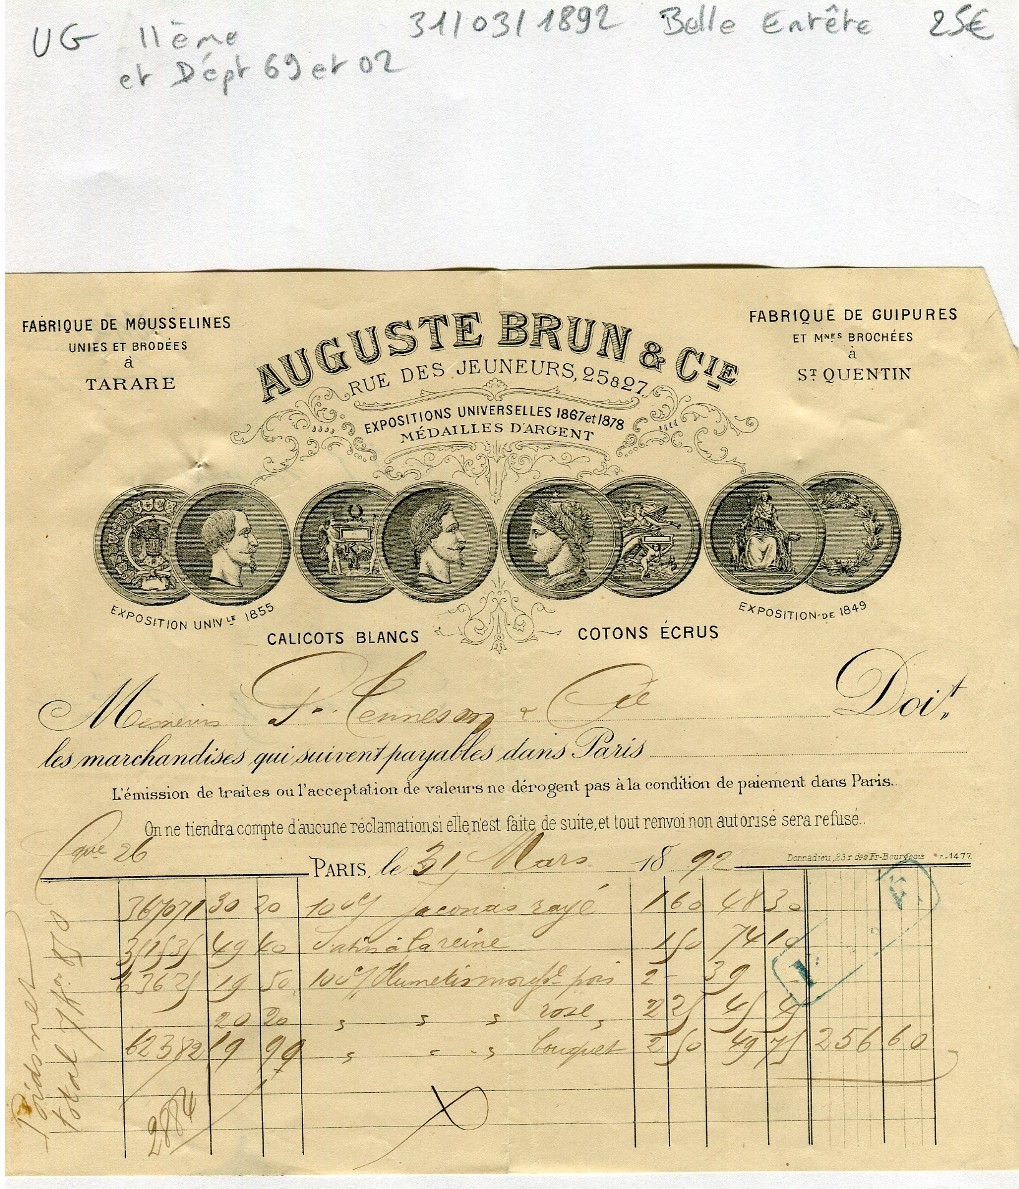 UG 11ème 31/03/1892 Belle Entête 25€
et Dépt 69 et 02
FABRIQUE DE MOUSSELINES
UNIES ET BRODÉES
à
TARARE
AUGUSTE BRUN & CIE
RUE DES JEUNEURS, 25 & 27
EXPOSITIONS UNIVERSELLES 1867 et 1878
MÉDAILLES D'ARGENT
FABRIQUE DE GUIPURES
ET MNES BROCHÉES
à
ST QUENTIN
EXPOSITION UNIVLE 1855
EXPOSITION DE 1849
CALICOTS BLANCS
COTONS ÉCRUS
Messieurs P. Tenneson & Cie Doit
les marchandises qui suivent payables dans Paris
L'émission de traites ou l'acceptation de valeurs ne dérogent pas à la condition de paiement dans Paris.
On ne tiendra compte d'aucune réclamation, si elle n'est faite de suite, et tout renvoi non autorisé sera refusé.
26
PARIS, le 31 Mars 1892
Donnadieu, 23 r des Fr-Bourgeois
36707 30 20 100c/ jaconas rayé 1 60 48 30
49 40 Satin à la reine 1 50 74 10
63625 19 50 100c/ pois 2 - 39
20 20 " " " rose 2 25 45 45
62382 19 90 " " " bouquet 2 50 49 75 256 60
2884
Poids net
total